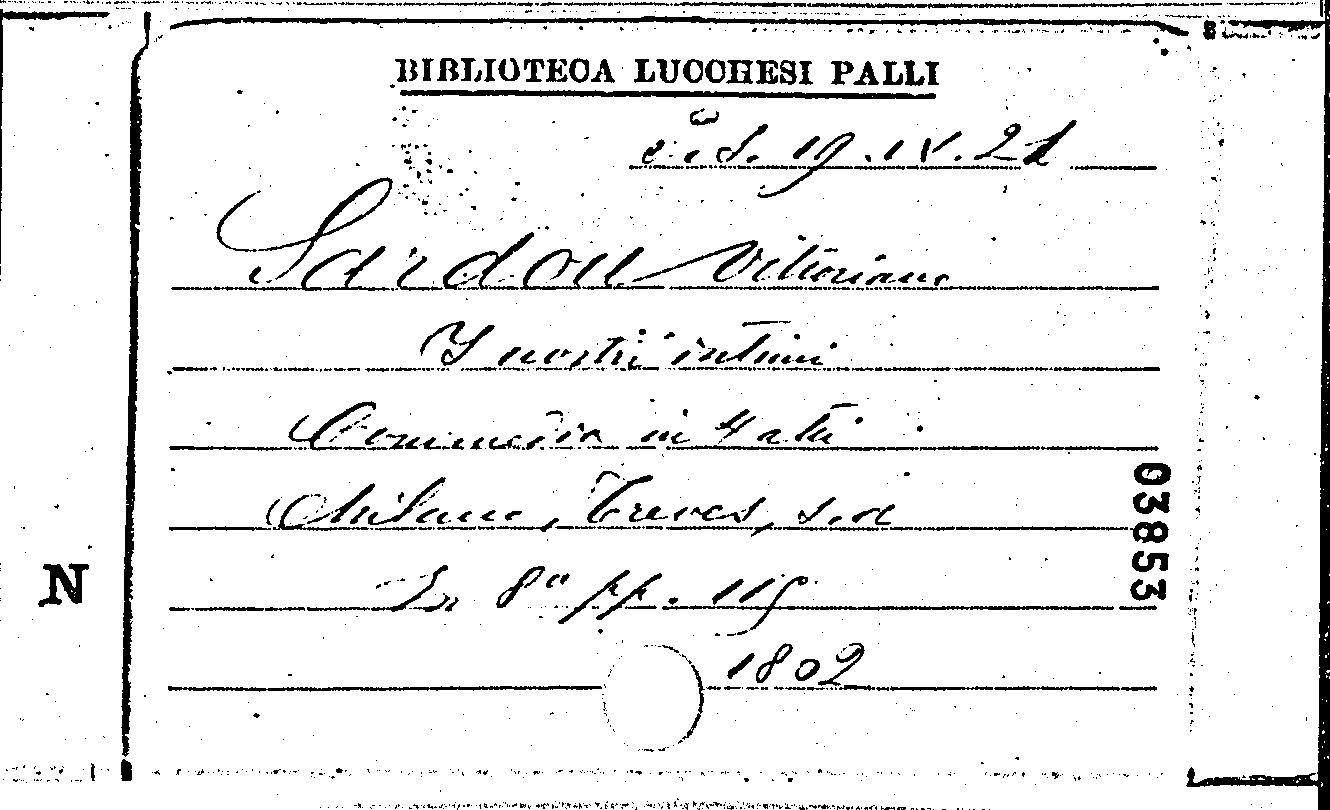 BIBLIOTECA LUCCHESI PALLI
19.IV.21
Sardou Vittoriano
I nostri intimi
Commedia in 4 atti
Milano, Treves, s.d
In 8° pp. 115
1802
03853
N